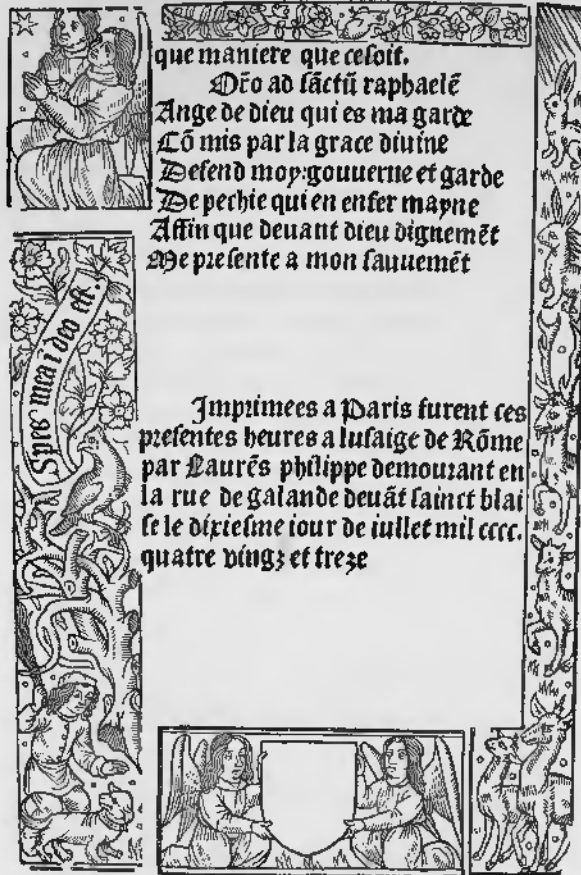 que maniere que cesoit.
Oro ad sāctū raphaelē
Ange de dieu qui es ma garde
Cō mis par la grace diuine
Defend moy:gouuerne et garde
De pechie qui en enfer mayne
Affin que deuant dieu dignemēt
Me presente a mon sauuemēt
Spes mea ī deo est.
Imprimees a Paris furent ces
presentes heures a lusaige de Rōme
par Laurēs philippe demourant en
la rue de galande deuāt sainct blai
se le dixiesme iour de iullet mil cccc.
quatre vingz et treze